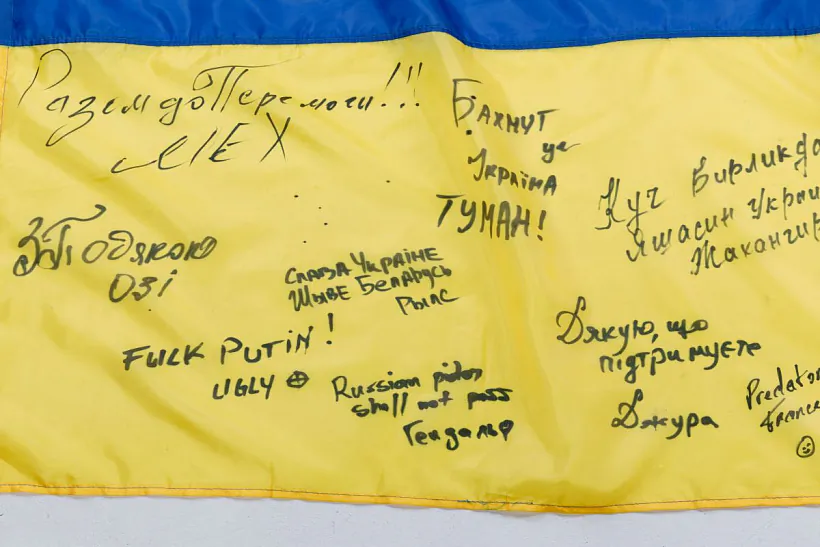 Разом до Перемоги!!!
МЕХ
Бахмут
це
Україна
ТУМАН!
З Подякою
ОЗІ
Слава Україне
Жыве Беларусь
Рыпс
Куч бирликда
Яшасин Украи
Жахангир
FUCK PUTIN!
UGLY
Russian pidor
shall not pass
Гендальф
Дякую, що
підтримуєте
Джура
Predator
France